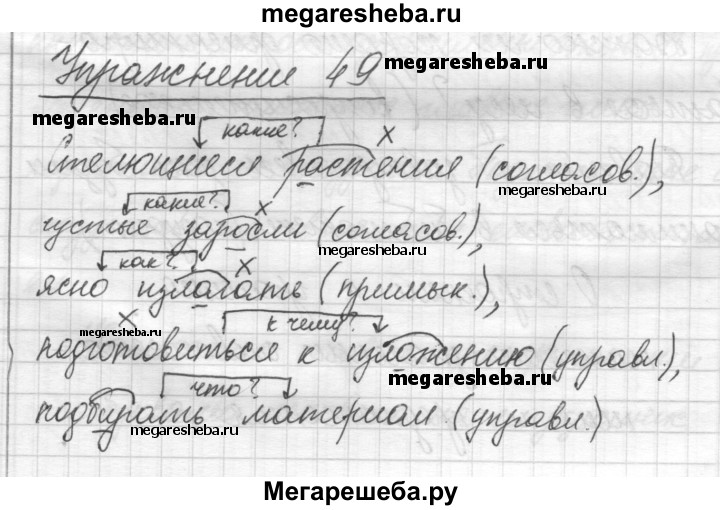 megaresheba.ru
Упражнение 49
megaresheba.ru
megaresheba.ru
какие? х
Стелющиеся растения (согласов.),
megaresheba.ru
какие? х
густые заросли (согласов.),
megaresheba.ru
как? х
ясно излагать (примык.),
megaresheba.ru
х к чему?
подготовиться к изложению (управл.),
megaresheba.ru
что?
подбирать материал (управл.)
megaresheba.ru
Мегарешеба.ру